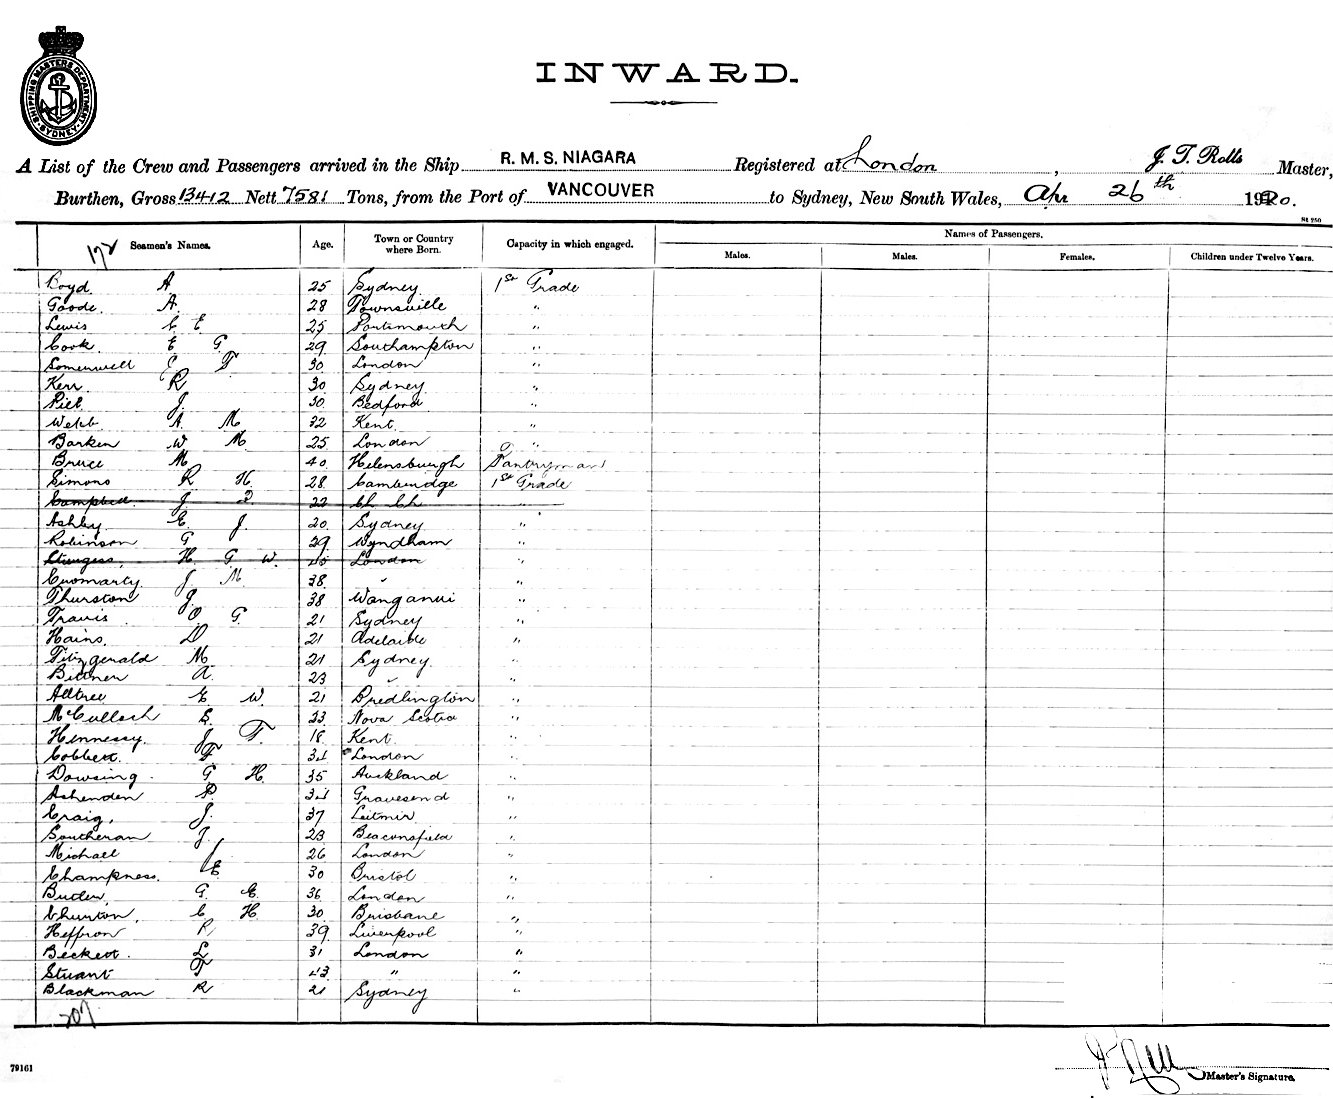 SHIPPING MASTERS DEPARTMENT
SYDNEY
INWARD.
A List of the Crew and Passengers arrived in the Ship R. M. S. NIAGARA Registered at London, J. T. Rolls Master,
Burthen, Gross 13412 Nett 7581 Tons, from the Port of VANCOUVER to Sydney, New South Wales, Apr 26th 1920.
St 250
172 Seamen's Names. Age. Town or Country where Born. Capacity in which engaged. Names of Passengers.
Males. Males. Females. Children under Twelve Years.
Boyd. A 25 Sydney 1st Grade
Goode. A. 28 Townsville "
Lewis C E 25 Portsmouth "
Cook. E G. 29 Southampton "
Somerwell E F 30 London "
Kerr. R 30 Sydney "
Piel. J. 30 Bedford "
Webb. A. M 32 Kent. "
Barken W M 25 London "
Bruce M 40 Helensburgh Pantryman
Simons R H. 28 Cambridge 1st Grade
Campbell. J. D 22 Ch Ch "
Ashby. E. J. 20 Sydney "
Robinson G 29 Wyndham "
Sturgess, H G W. London
Cromarty. J M 38 " "
Thurston J. 38 Wanganui "
Travis O G. 21 Sydney "
Hains. D 21 Adelaide "
Fitzgerald M. 21 Sydney "
Bittner A. 23 " "
Alltree E W. 21 Bredlington "
McCulloch S. 33 Nova Scotia "
Hennessy. J F. 18 Kent. "
Cobbett. F 34 London "
Dowsing. G H. 35 Auckland "
Ashenden P. 34 Gravesend "
Craig, J. 37 "
Southeran J. 23 Beaconsfield "
Michael J 26 London "
Champness. E 30 Bristol "
Butler, G. E. 36 London "
Churton, C H. 30 Brisbane "
Heffron R 39 Liverpool "
Beckett. L 31 London "
Stuart F 43 " "
Blackman R 21 Sydney "
207
79161
Master's Signature.